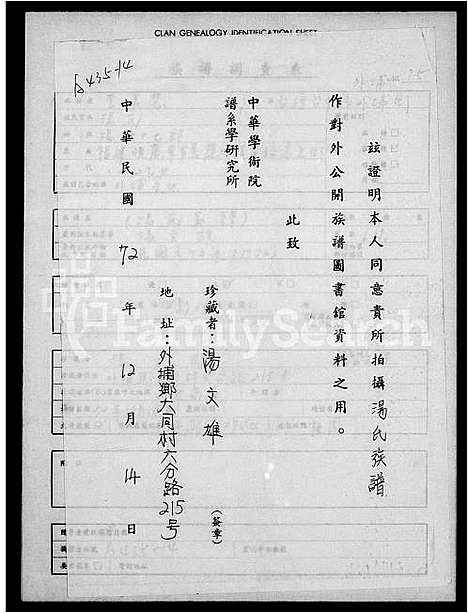 CLAN GENEALOGY IDENTIFICATION SHEET
A435-14
茲證明本人同意貴所拍攝湯氏族譜
作對外公開族譜圖書館資料之用。
此致
中華學術院
譜系學研究所
珍藏者:湯文雄(簽章)
地址:外埔鄉大同村六分路215号
中華民國72年12月14日
FamilySearch